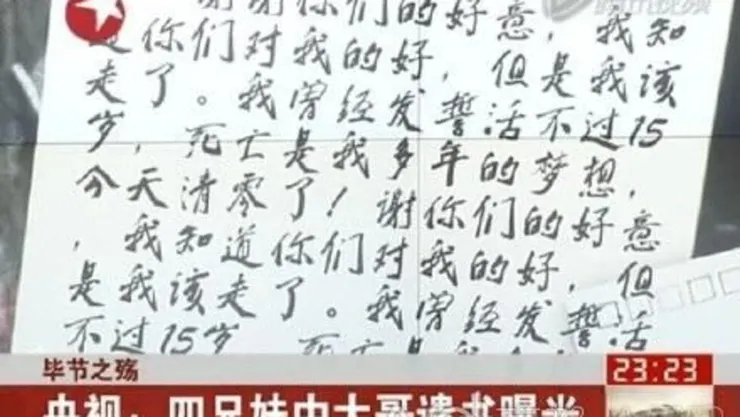 谢谢你们的好意，我知
道你们对我的好，但是我该
走了。我曾经发誓活不过15
岁，死亡是我多年的梦想，
今天清零了！谢你们的好意
，我知道你们对我的好，但
是我该走了。我曾经发誓活
不过15岁，死亡是我
毕节之殇
23:23
央视：四兄妹中大哥遗书曝光